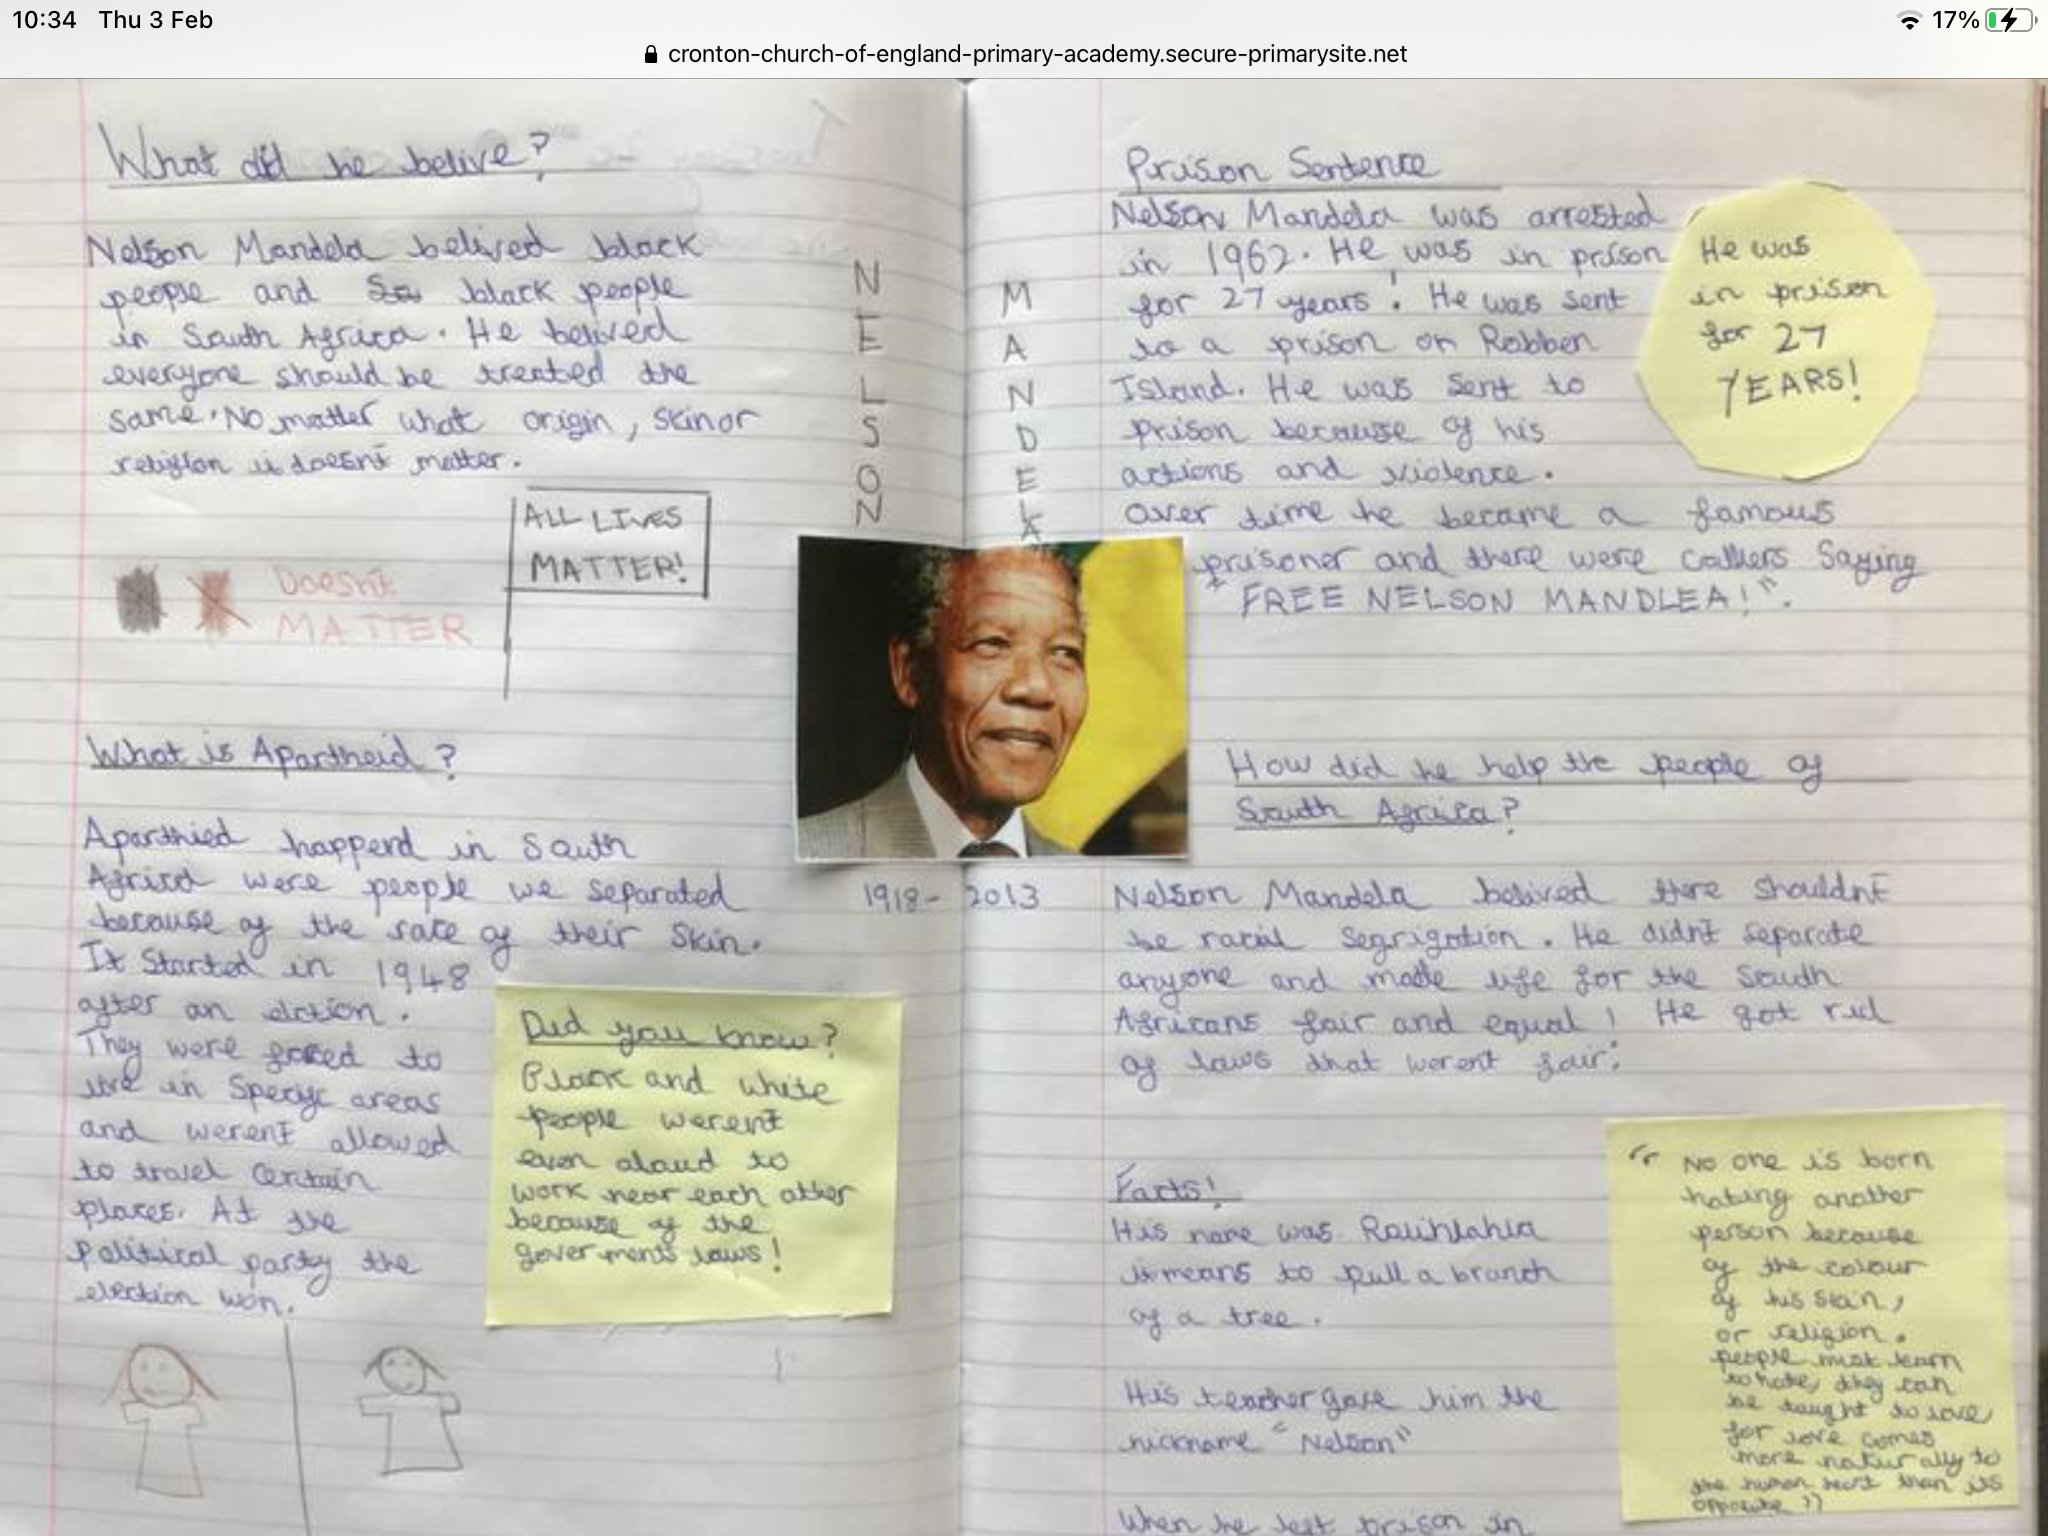 10:34 Thu 3 Feb
17%
cronton-church-of-england-primary-academy.secure-primarysite.net
What did he belive?
Nelson Mandela belived black
people and black people
in South Africa. He belived
everyone should be treated the
same. No matter what origin, skin or
religion it doesn't matter.
Doesn't
MATTER
ALL LIVES
MATTER!
What is Apartheid?
Aparthied happend in South
Africa were people we separated
because of the rate of their skin.
It started in 1948
after an elction.
They were forced to
live in specific areas
and weren't allowed
to travel certain
places. At the
political party the
election won.
Did you know?
Black and white
people weren't
even aloud to
work near each other
because of the
goverments laws!
NELSON
MANDELA
1918- 2013
Prison Sentence
Nelson Mandela was arrested
in 1962. He was in prison
for 27 years! He was sent
to a prison on Robben
Island. He was sent to
prison because of his
actions and violence.
Over time he became a famous
prisoner and there were callers saying
"FREE NELSON MANDLEA!".
He was
in prison
for 27
YEARS!
How did he help the people of
South Africa?
Nelson Mandela belived there shouldn't
be racial segrigation. He didn't separate
anyone and made life for the South
Africans fair and equal! He got rid
of laws that weren't fair.
Facts!
His name was
it means to pull a branch
of a tree.
His teacher gave him the
nickname "Nelson"
When he left prison in
"No one is born
hating another
person because
of the colour
of his skin,
or religion.
people must learn
to hate, they can
be taught to love,
for love comes
more naturally to
the human heart than its
opposite"